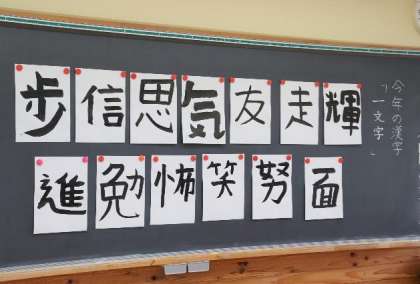 今年の漢字
「一文字」
歩信思気友走輝
進勉怖笑努面